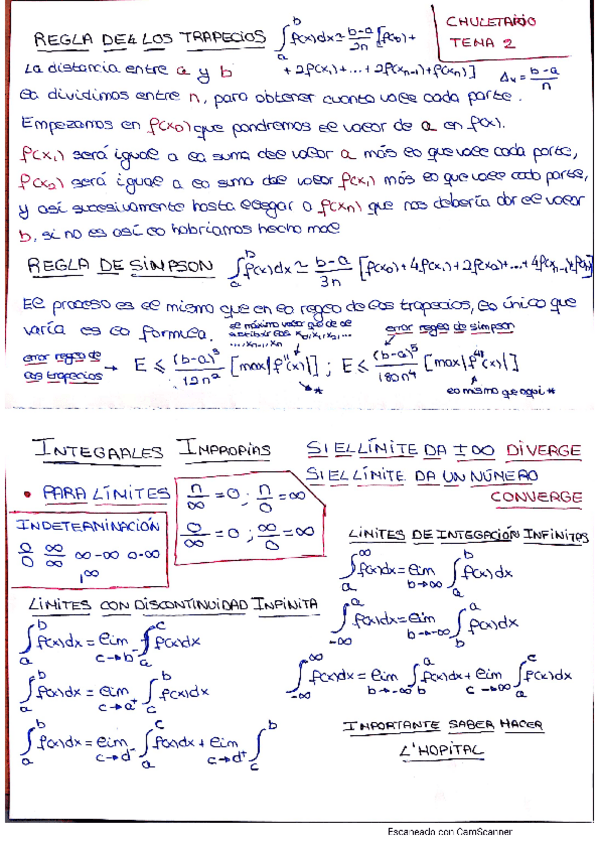 CHULETARIO
TEMA 2
REGLA DE LOS TRAPECIOS ∫_a^b f(x)dx ≃ b-a/2n [f(x₀)+
+ 2f(x₁)+...+ 2f(xₙ₋₁)+f(xₙ)] Δₓ = b-a/n
La distancia entre a y b
la dividimos entre n, para obtener cuanto vale cada parte.
Empezamos en f(x₀) que pondremos el valor de a en f(x).
f(x₁) será igual a la suma del valor a más lo que vale cada parte,
f(x₂) será igual a la suma del valor f(x₁) más lo que vale cada parte,
y así sucesivamente hasta llegar a f(xₙ) que nos debería dar el valor
b, si no es así lo habríamos hecho mal
REGLA DE SIMPSON ∫_a^b f(x)dx ≃ b-a/3n [f(x₀)+4f(x₁)+2f(x₂)+...+4f(xₙ₋₁)+f(xₙ)]
El proceso es el mismo que en la regla de los trapecios, lo único que
varía es la formula.
el máximo valor que da al
sustituir los x₀, x₁, x₂, ...
..., xₙ₋₁, xₙ
error regla de simpson
error regla de
los trapecios → E ⩽ (b-a)³/12n² [max|f''(x)|] ; E ⩽ (b-a)⁵/180n⁴ [max|f⁽⁴⁾(x)|]
*
lo mismo que aquí *
INTEGRALES IMPROPIAS
SI EL LÍMITE DA ±∞ DIVERGE
SI EL LÍMITE DA UN NÚMERO
CONVERGE
• PARA LÍMITES
n/∞ = 0 ; n/0 = ∞
0/∞ = 0 ; ∞/0 = ∞
INDETERMINACIÓN
0/0 ∞/∞ ∞-∞ 0-∞
1^∞
LÍMITES CON DISCONTINUIDAD INFINITA
∫_a^b f(x)dx = lim_{c→b⁻} ∫_a^c f(x)dx
∫_a^b f(x)dx = lim_{c→a⁺} ∫_c^b f(x)dx
∫_a^b f(x)dx = lim_{c→d⁻} ∫_a^c f(x)dx + lim_{c→d⁺} ∫_c^b
LÍMITES DE INTEGRACIÓN INFINITOS
∫_a^∞ f(x)dx = lim_{b→∞} ∫_a^b f(x)dx
∫_{-∞}^a f(x)dx = lim_{b→-∞} ∫_b^a f(x)dx
∫_{-∞}^∞ f(x)dx = lim_{b→-∞} ∫_b^a f(x)dx + lim_{c→∞} ∫_a^c f(x)dx
IMPORTANTE SABER HACER
L'HOPITAL
Escaneado con CamScanner